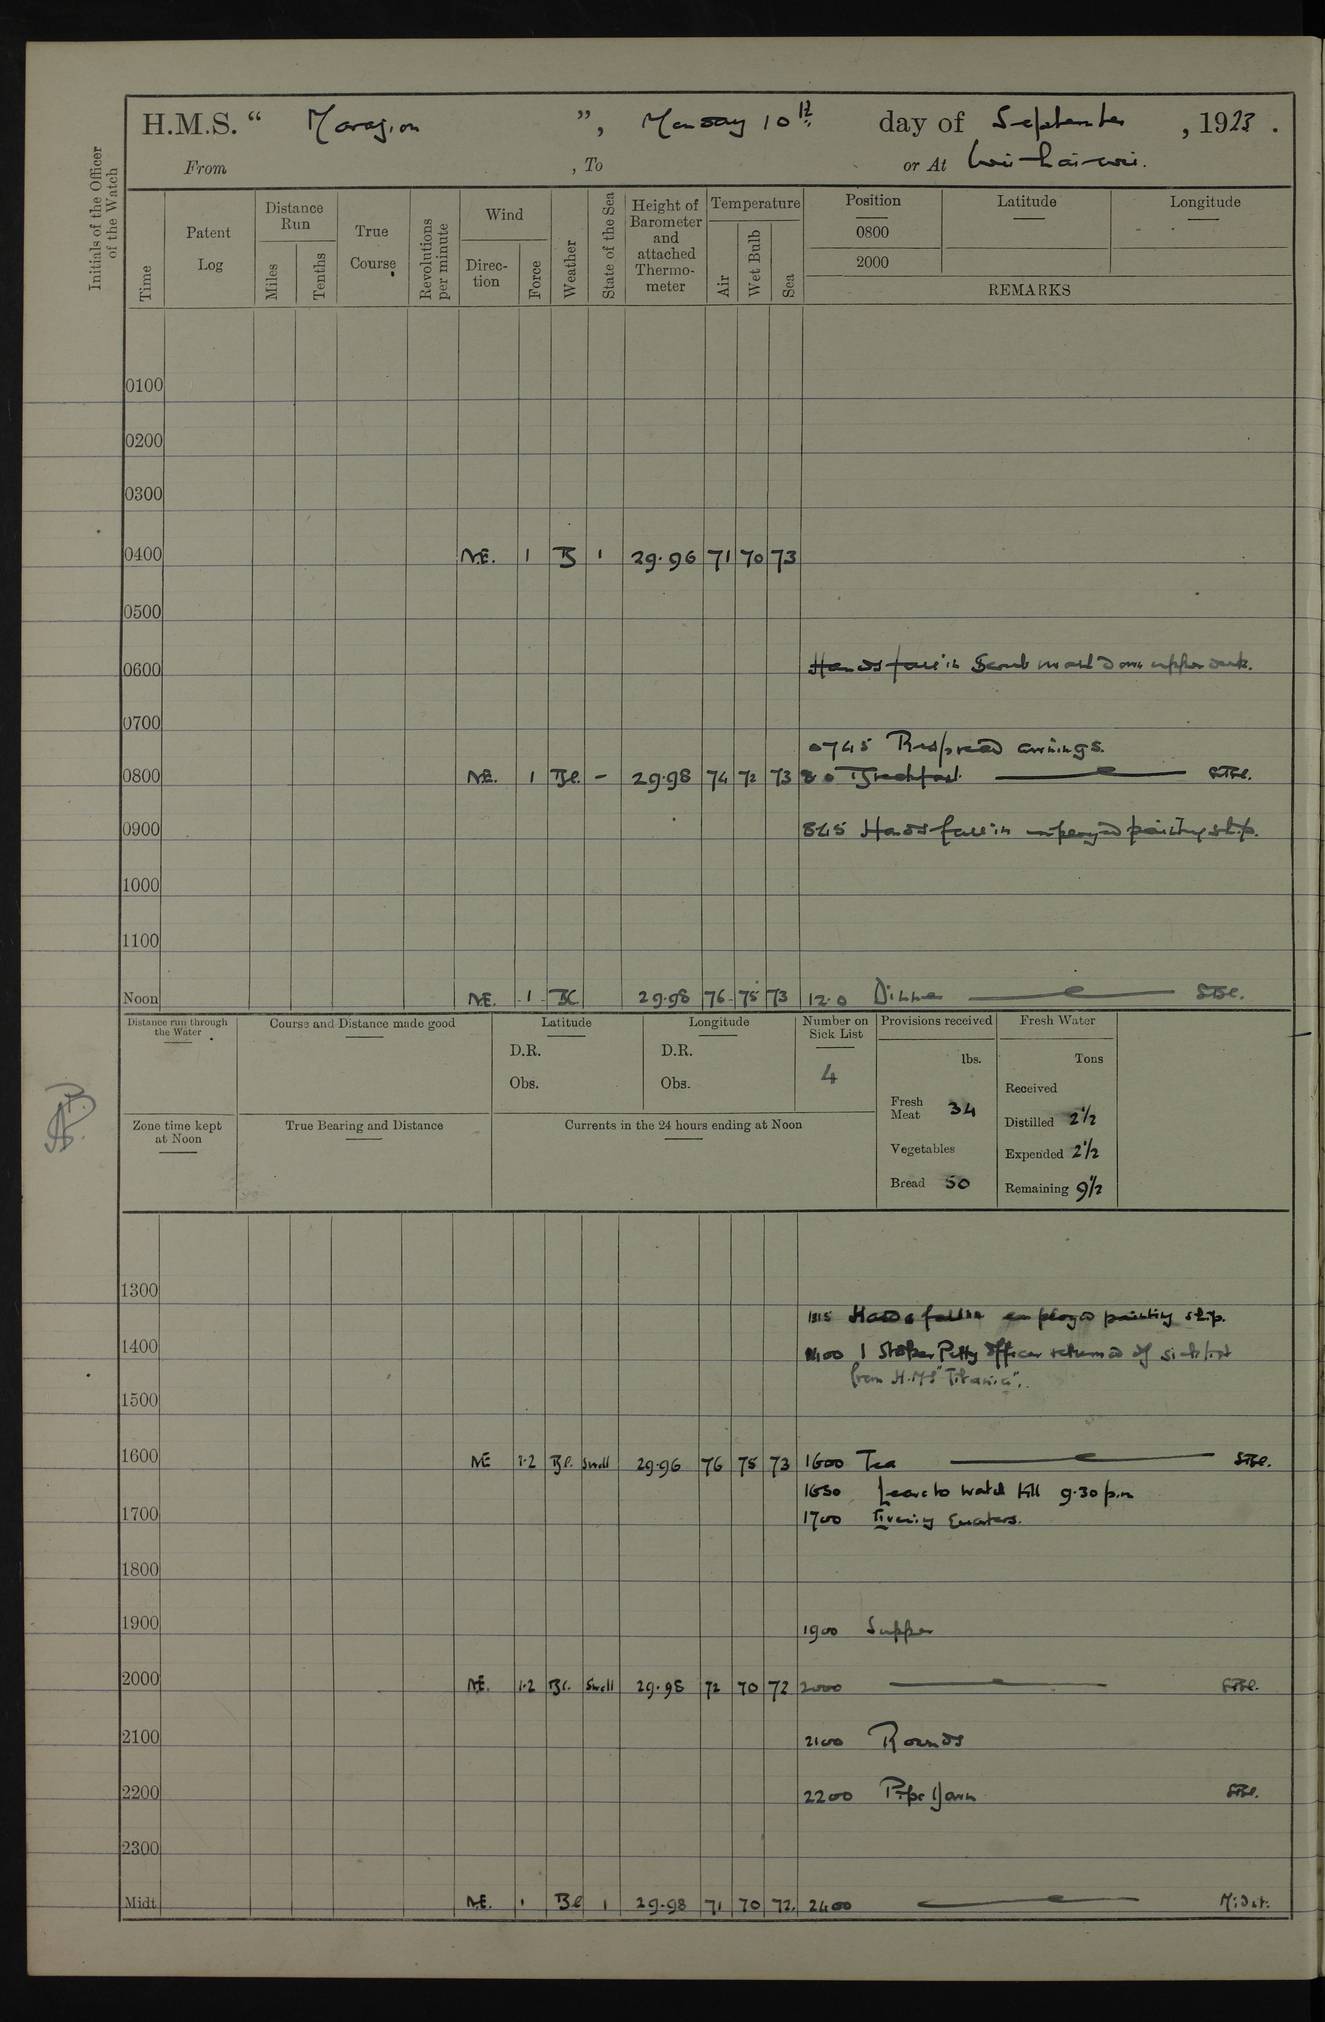 H.M.S. “ Marazion ”, Monday 10th day of September , 1923 .
From , To or At Wei-hai-wei.
Initials of the Officer of the Watch
Time
Patent Log
Distance Run
Miles
Tenths
True Course
Revolutions per minute
Wind
Direc-tion
Force
Weather
State of the Sea
Height of Barometer and attached Thermo-meter
Temperature
Air
Wet Bulb
Sea
Position
0800
2000
Latitude
Longitude
REMARKS
0100
0200
0300
0400 N.E. 1 B 1 29.96 71 70 73
0500
0600 Hands fall in Scrub and down upper deck.
0700
0745 Respread awnings.
0800 N.E. 1 Bc. - 29.98 74 72 73 8 0 Breakfast
0900 845 Hands fall in employed painting ship.
1000
1100
Noon N.E. 1 BC 29.98 76 75 73 12.0 Dinner
Distance run through the Water
Course and Distance made good
Latitude
D.R.
Obs.
Longitude
D.R.
Obs.
Number on Sick List
4
Provisions received
lbs.
Fresh Meat 34
Vegetables
Bread 50
Fresh Water
Tons
Received
Distilled 2½
Expended 2½
Remaining 9½
Zone time kept at Noon
True Bearing and Distance
Currents in the 24 hours ending at Noon
1300
1315 Hands fall in employed painting ship.
1400 1400 1 Stoker Petty Officer returned off sick list
from H.M.S "Titania".
1500
1600 NE 1-2 Bc. Swell 29.96 76 75 73 1600 Tea
1630 Leave to watch till 9.30 p.m
1700 1700 Evening Quarters.
1800
1900 1900 Supper
2000 N.E. 1-2 Bc. Swell 29.98 72 70 72 2000
2100 2100 Rounds
2200 2200 Pipe Down
2300
Midt. N.E. 1 Bc 1 29.98 71 70 72. 2400 Midnt.